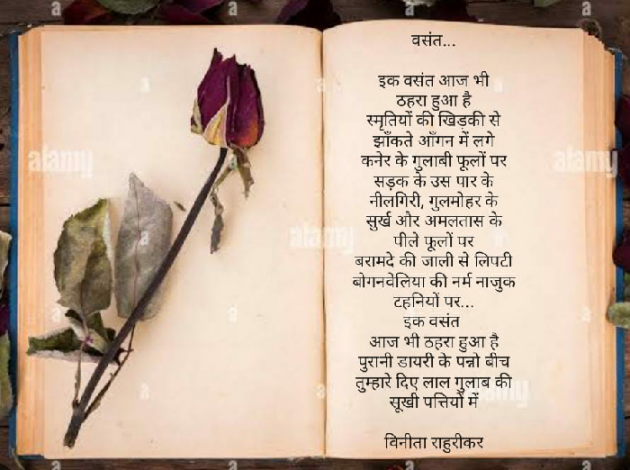 वसंत...
इक वसंत आज भी
ठहरा हुआ है
स्मृतियों की खिड़की से
झाँकते आँगन में लगे
कनेर के गुलाबी फूलों पर
सड़क के उस पार के
नीलगिरी, गुलमोहर के
सुर्ख और अमलतास के
पीले फूलों पर
बरामदे की जाली से लिपटी
बोगनवेलिया की नर्म नाजुक
टहनियों पर...
इक वसंत
आज भी ठहरा हुआ है
पुरानी डायरी के पन्नो बीच
तुम्हारे दिए लाल गुलाब की
सूखी पत्तियों में
विनीता राहुरीकर
alamy
alamy
alamy
alamy